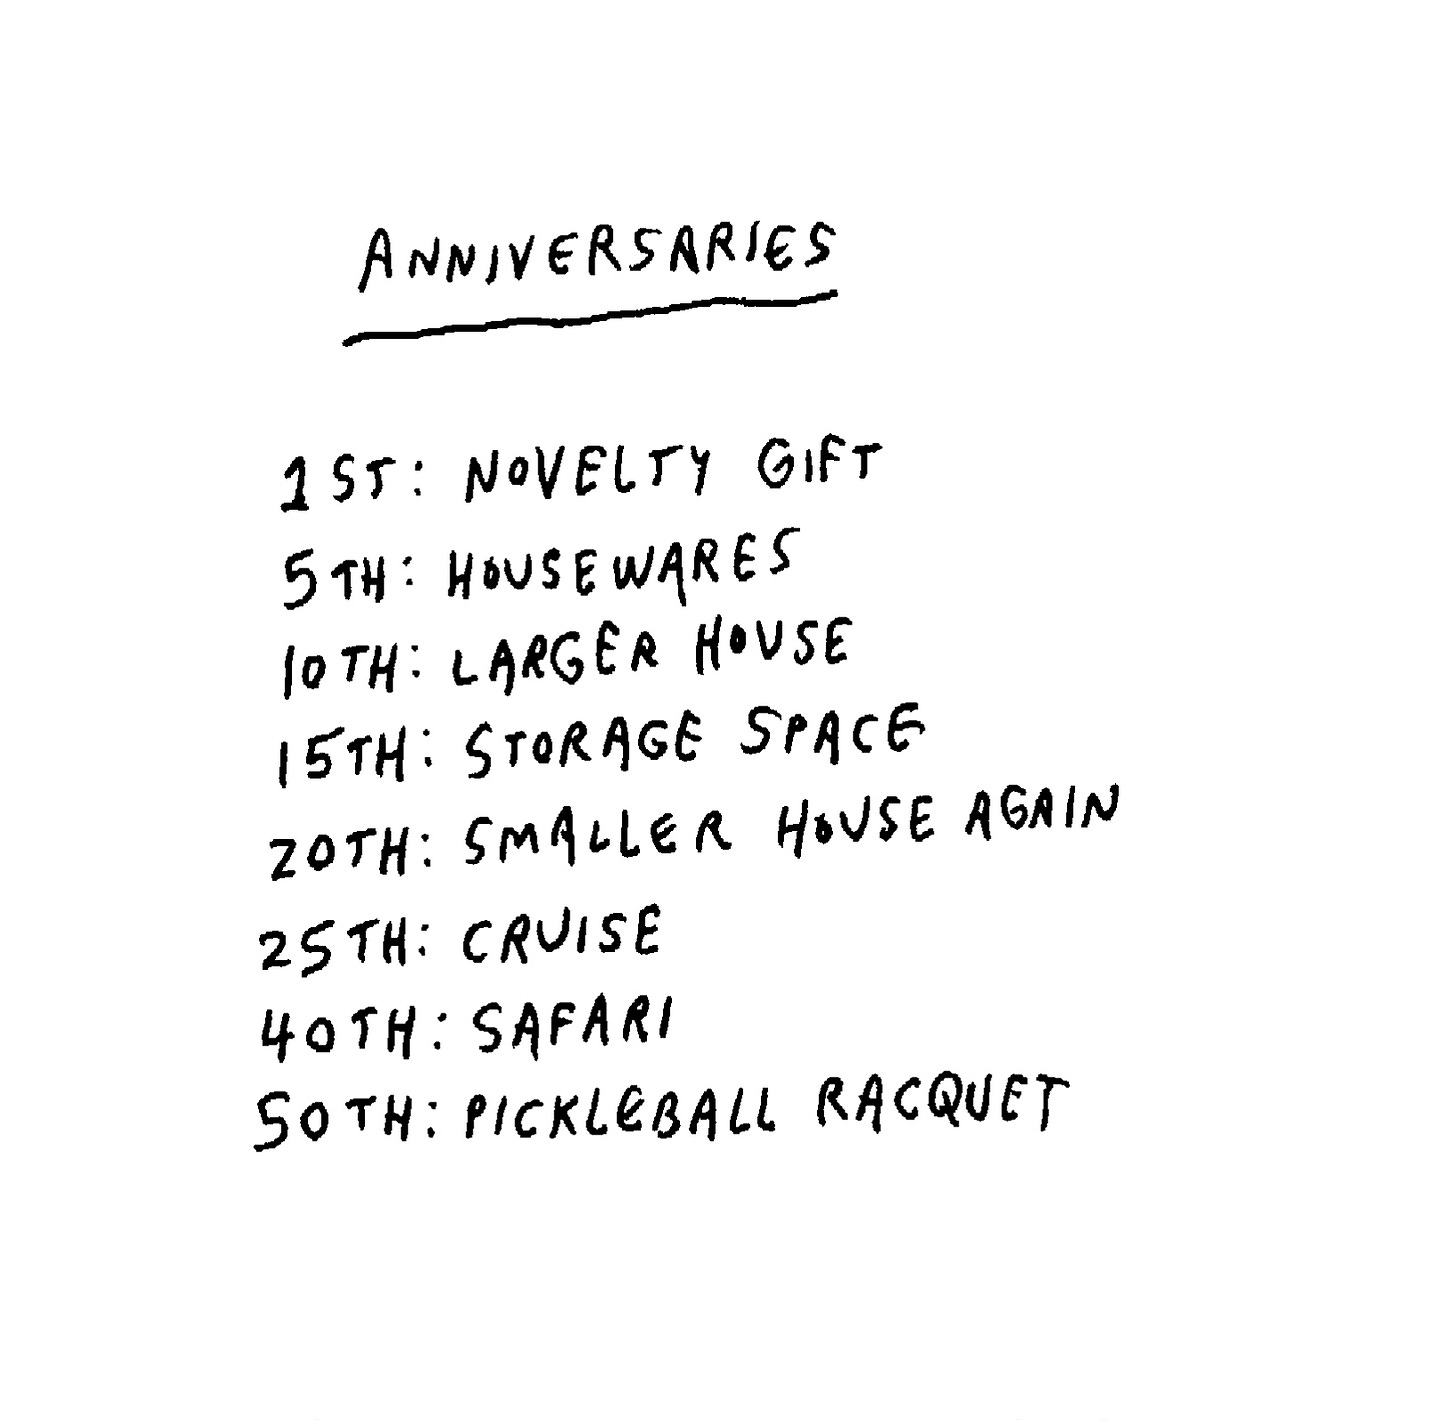 ANNIVERSARIES
1ST: NOVELTY GIFT
5TH: HOUSEWARES
10TH: LARGER HOUSE
15TH: STORAGE SPACE
20TH: SMALLER HOUSE AGAIN
25TH: CRUISE
40TH: SAFARI
50TH: PICKLEBALL RACQUET